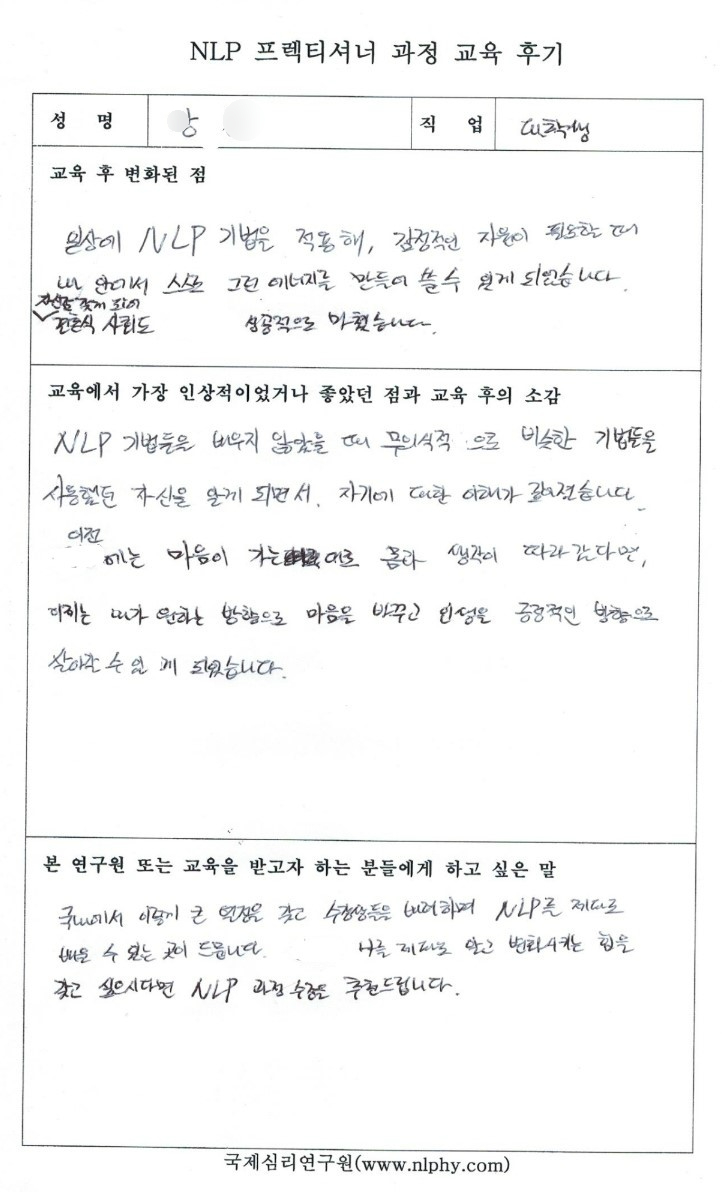 NLP 프렉티셔너 과정 교육 후기
성 명
직 업 대학생
교육 후 변화된 점
일상에 NLP 기법을 적용해, 감정적인 자원이 필요할 때
내 안에서 스스로 그런 에너지를 만들어 쓸 수 있게 되었습니다.
자신감 갖게 되어
결혼식 사회도 성공적으로 마쳤습니다.
교육에서 가장 인상적이었거나 좋았던 점과 교육 후의 소감
NLP 기법들을 배우지 않았을 때 무의식적으로 비슷한 기법들을
사용했던 자신을 알게 되면서, 자기에 대한 이해가 깊어졌습니다.
이전
에는 마음이 가는 대로 몸과 생각이 따라간다면,
이제는 내가 원하는 방향으로 마음을 바꾸고 인생을 긍정적인 방향으로
살아갈 수 있게 되었습니다.
본 연구원 또는 교육을 받고자 하는 분들에게 하고 싶은 말
국내에서 이렇게 큰 열정을 갖고 수강생들을 배려하며 NLP를 제대로
배울 수 있는 곳이 드뭅니다. 나를 제대로 알고 변화시키는 힘을
갖고 싶으시다면 NLP 과정 수강을 추천드립니다.
국제심리연구원(www.nlphy.com)